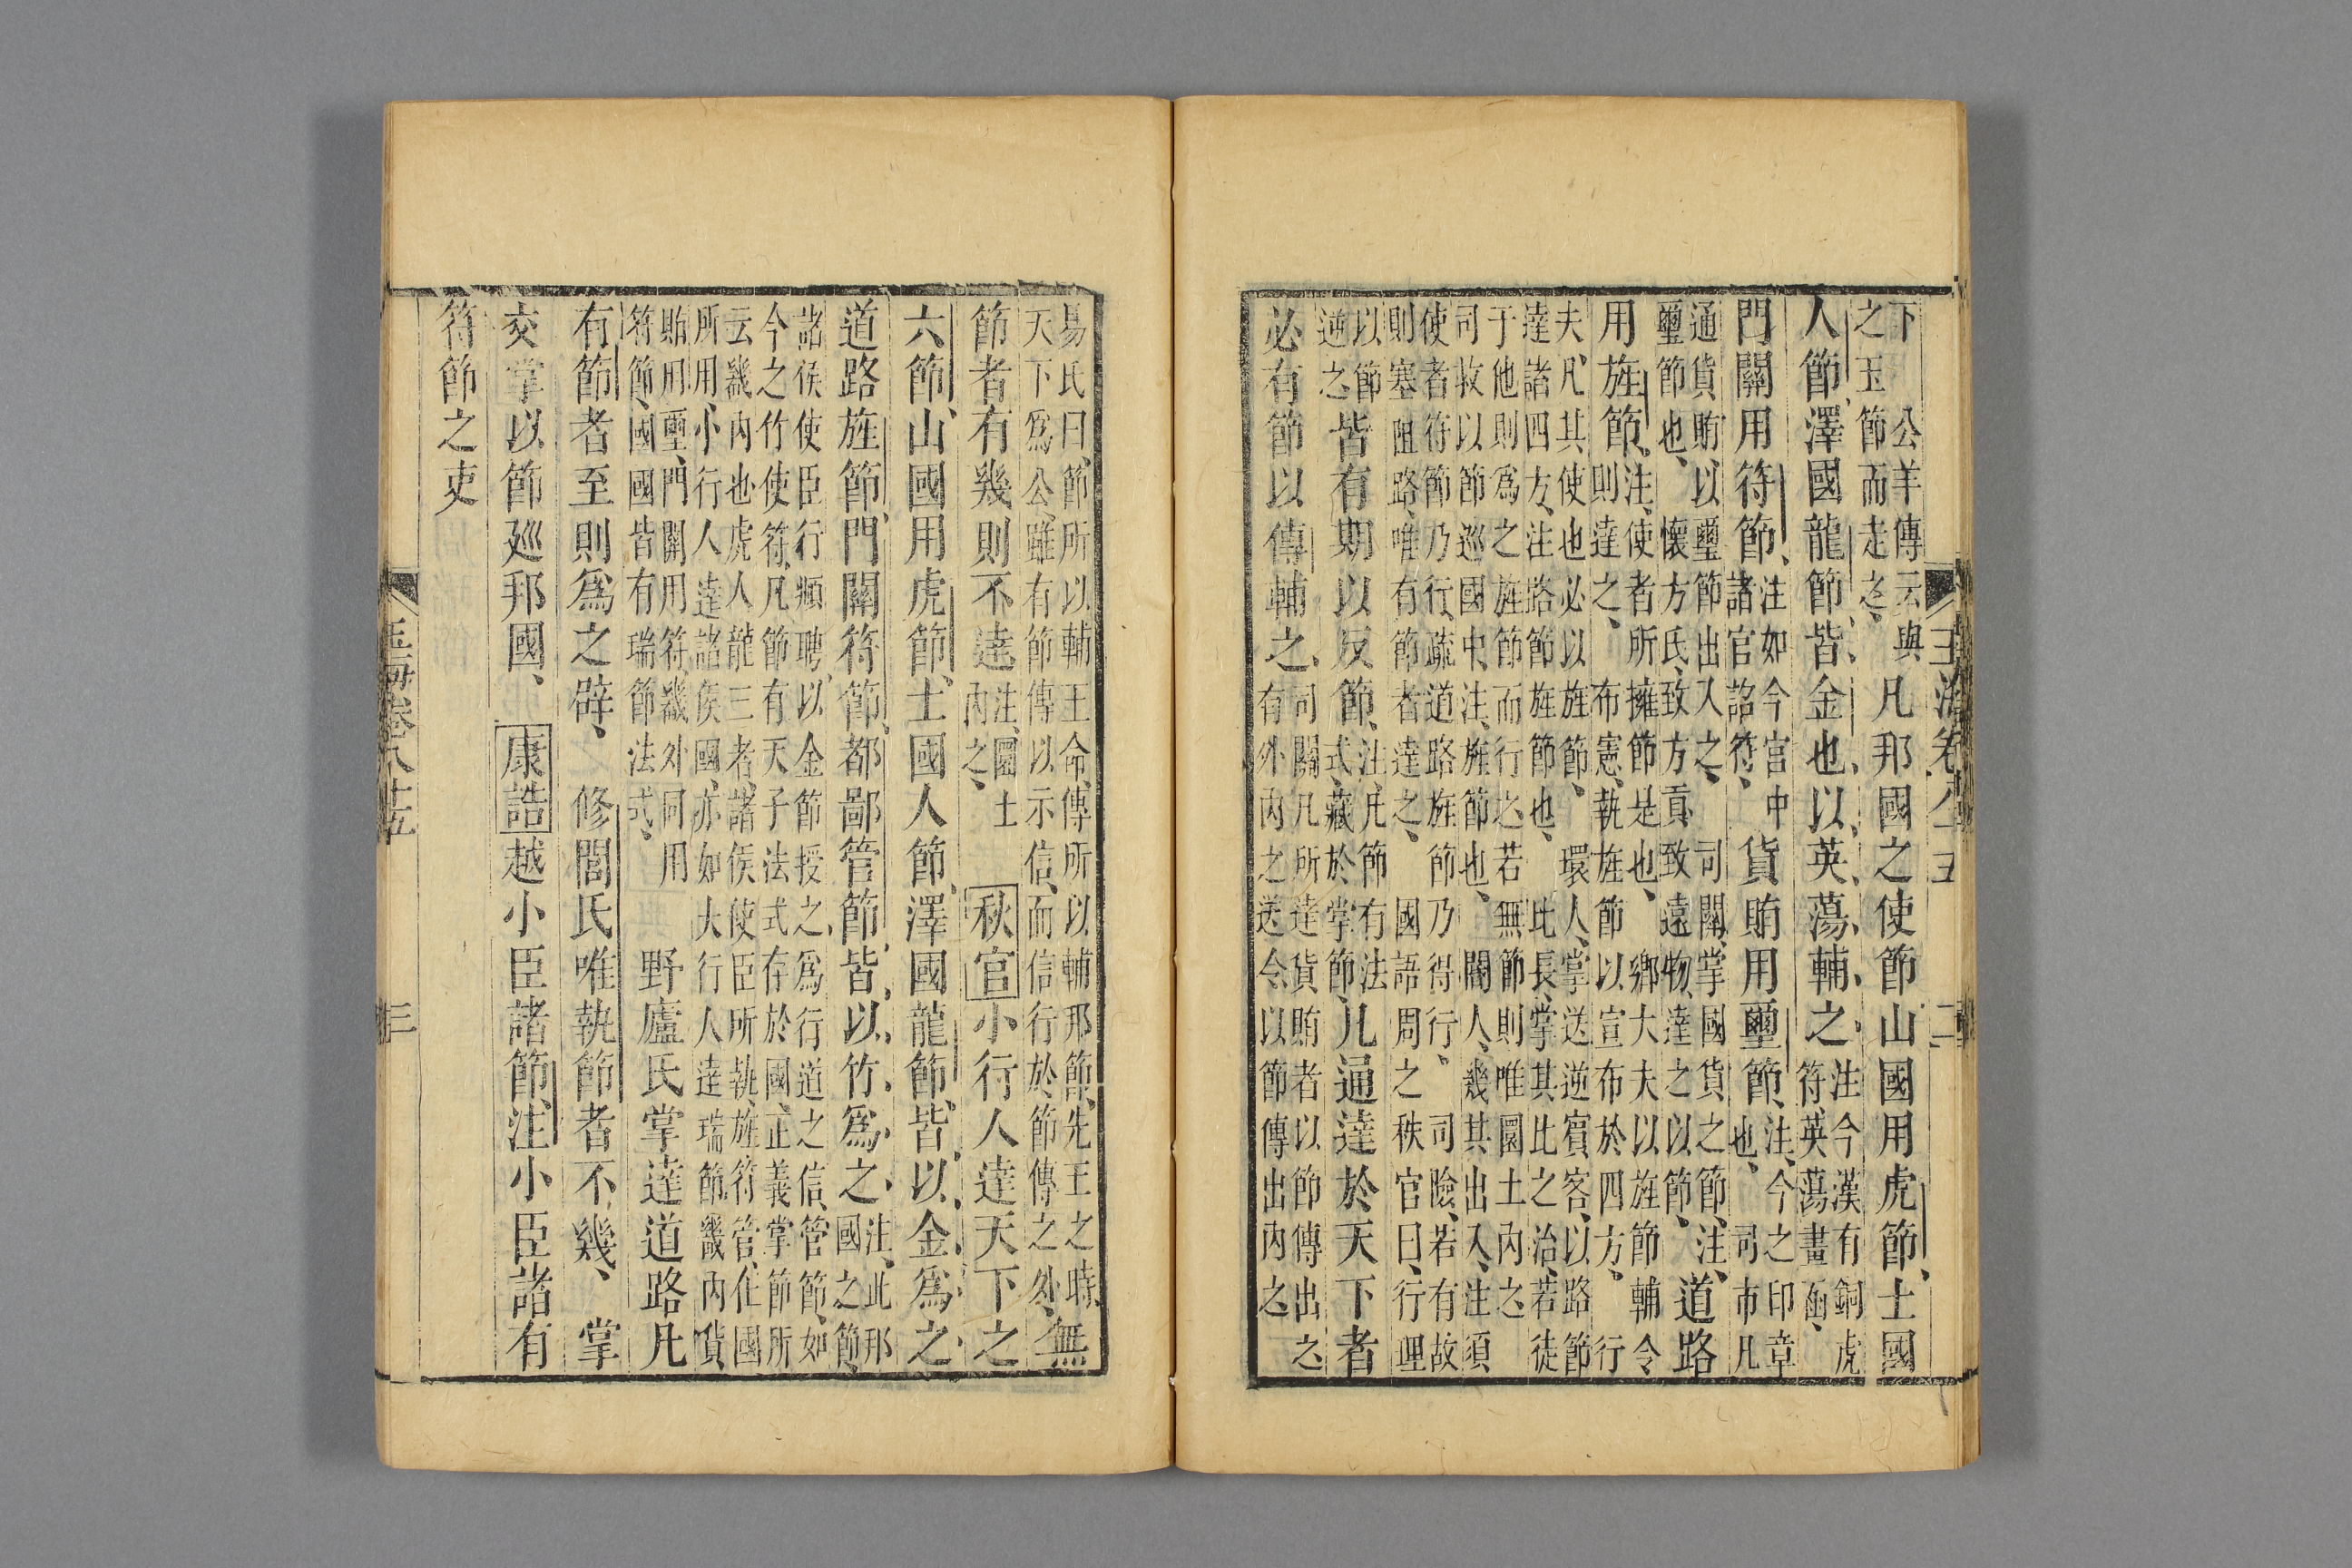 玉海卷八十五 二
下 公羊傳云與
之玉節而走之
凡邦國之使節山國用虎節土國
人節澤國龍節皆金也以英蕩輔之
注今漢有銅虎
符英蕩畫函
門關用符節
注如今宮中
諸官詔符
貨賄用璽節
注今之印章
也 司市凡
通貨賄以璽節出入之 司關掌國貨之節注
璽節也 懷方氏致方貢致遠物達之以節
道路
用旌節
注使者所擁節是也 鄉大夫以旌節輔令
則達之 布憲執旌節以宣布於四方 行
夫凡其使也必以旌節 環人掌送逆賓客以路節
達諸四方注路節旌節也 比長掌其比之治若徒
于他則爲之旌節而行之若無節則唯圜土內之
司救以節巡國中注旌節也 閽人幾其出入注須
使者符節乃行疏道路旌節乃得行 司險若有故
則塞阻路唯有節者達之 國語周之秩官曰行理
以節
逆之
皆有期以反節
注凡節有法
式藏於掌節
凡通達於天下者
必有節以傳輔之
司關凡所達貨賄者以節傳出之
有外內之送令以節傳出內之
易氏曰節所以輔王命傳所以輔邦節先王之時無
天下爲公雖有節傳以示信而信行於節傳之外
節者有幾則不達
注圜土
內之
秋官小行人達天下之
六節山國用虎節土國人節澤國龍節皆以金爲之
道路旌節門關符節都鄙管節皆以竹爲之
注此邦
國之節
諸侯使臣行頫聘以金節授之爲行道之信管節如
今之竹使符凡節有天子法式存於國正義掌節所
云畿內也虎人龍三者諸侯使臣所執旌符管在國
所用小行人達諸侯國亦如大行人達瑞節畿內貨
賄用璽門關用符畿外同用
符節國國皆有瑞節法式
野廬氏掌達道路凡
有節者至則爲之辟 修閭氏唯執節者不幾 掌
交掌以節廵邦國 康誥越小臣諸節注小臣諸有
符節之吏
玉海卷八十五 三